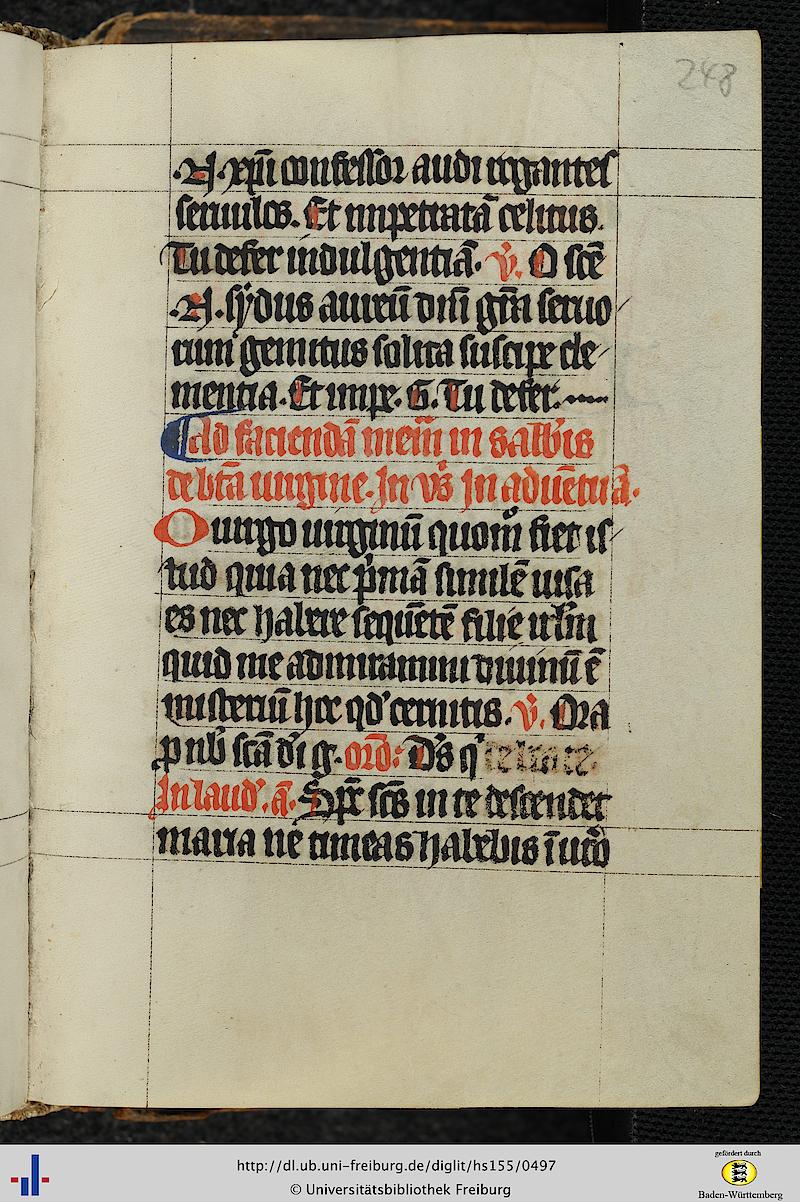 248
.N. xp̄i confessor audi rogantes
seruulos. Et impetratā celitus.
Tu defer indulgentiā. v̄. O scē
.N. sydus aureū dn̄i gr̄a seruo
rum gemitus solita suscipe cle
mentia. Et impe. G. Tu defer.
Ad faciendā mem̄ in sabb̓is
de btā uirgine. In vs̄ In aduētu ā.
O uirgo uirginū quom̊ fiet is
tud quia nec p̓mā similē uisa
es nec habere sequētē filie irl̓m
quid me admiramini diuinū ē
misteriū hoc qd̓ cernitis. v̄. Ora
p nb̓ scā di g. orō: Ds̄ q̓
In laud̓. ā. Spc̄ scs̄ in te descendet
maria ne timeas habebis ī uto
http://dl.ub.uni-freiburg.de/diglit/hs155/0497
© Universitätsbibliothek Freiburg
gefördert durch
Baden-Württemberg